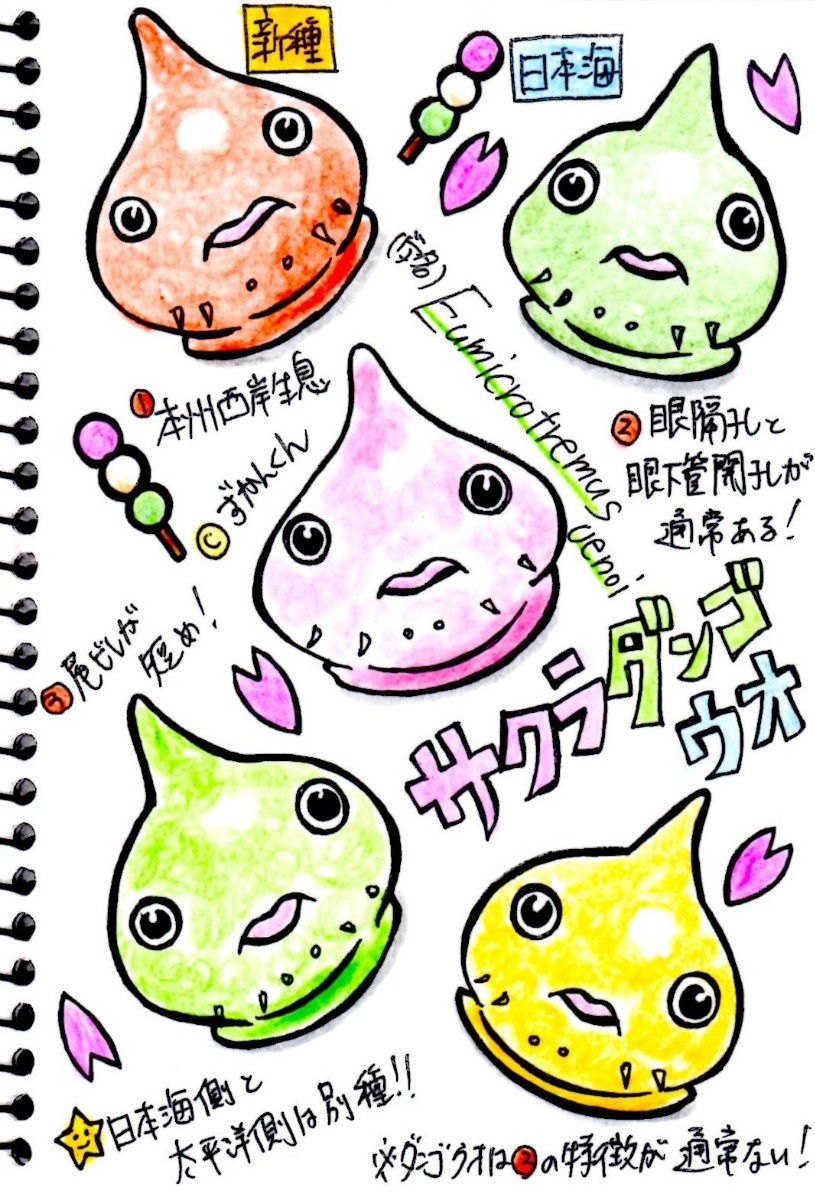 新種
日本海
(学名)
Eumicrotremus uenoi
① 本州西岸生息
© ずかんくん
② 眼隔孔と
眼下管開孔が
通常ある!
③ 尾ビレが
短め!
サクラダンゴ
ウオ
日本海側と
太平洋側は別種!!
※ダンゴウオは②の特徴が通常ない!